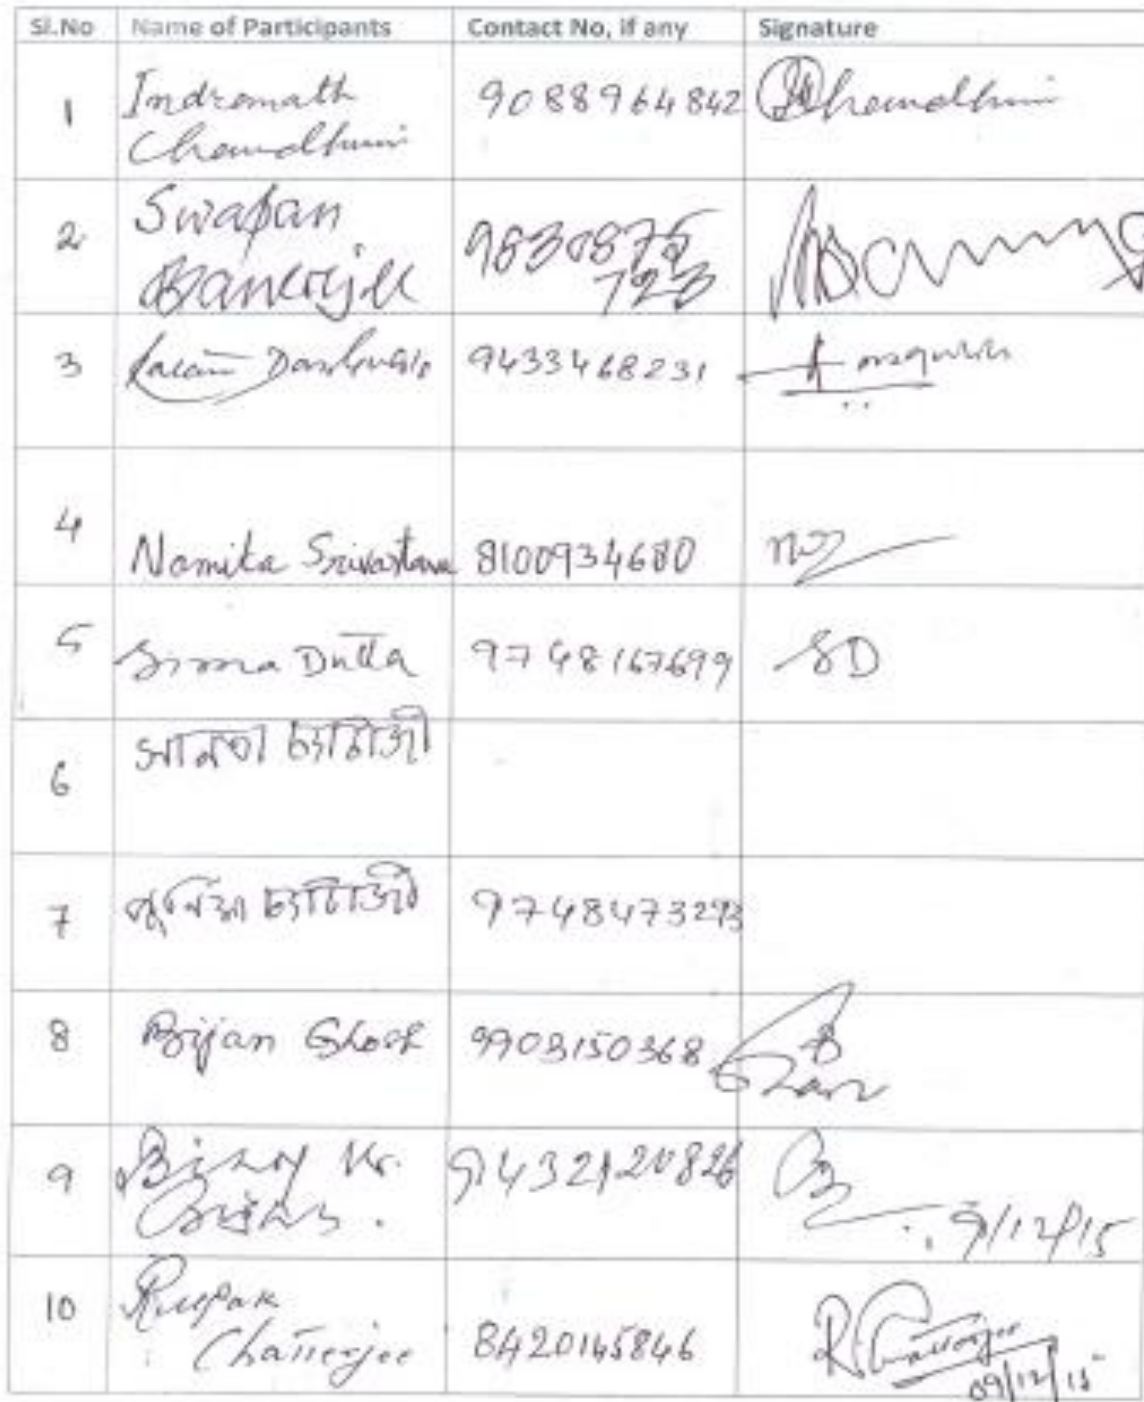 Sl.No Name of Participants Contact No, if any Signature
1 Indranath 9088964842
Chaudhuri
2 Swapan 9830875
Banerjee 723
3 9433468231
4 Namita Srivastava 8100934680
5 Sima Dutta 9748167699 SD
6 চ্যাটার্জী
7 পূর্ণিমা চ্যাটার্জী 9748473293
8 Bijan Ghosh 9903150368
9 Kr. 9432120826
9/12/15
10 Rupak
Chatterjee 8420145846 R. Chatterjee
09/12/15